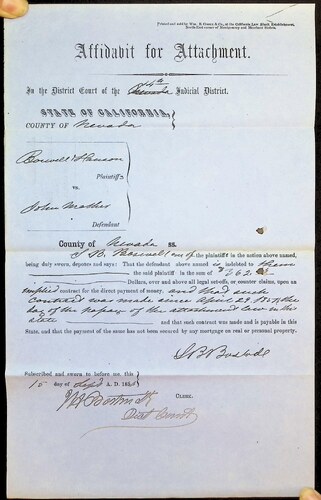 Printed and sold by Wm. B. Cooke & Co., at the California Law Blank Establishment,
Affidavit for Attachment.
In the District Court of the 14th Judicial District.
STATE OF CALIFORNIA,
COUNTY OF Nevada
Boswell & Hanson
Plaintiffs
vs.
John Mather
Defendant
County of Nevada ss.
J. B. Boswell one of the plaintiff in the action above named,
being duly sworn, deposes and says: That the defendant above named is indebted to them
the said plaintiff in the sum of $762
Dollars, over and above all legal setoffs, or counter claims, upon an
implied contract for the direct payment of money. and that such
contract was made since April 29 1857 the
day of the passage of the attachment law in this
state and that such contract was made and is payable in this
State, and that the payment of the same has not been secured by any mortgage on real or personal property.
Subscribed and sworn to before me, this
15 day of Sept A. D. 185
CLERK.